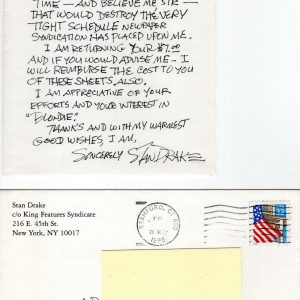 TIME — AND BELIEVE ME SIR —
THAT WOULD DESTROY THE VERY
TIGHT SCHEDULE NEWSPAPER
SYNDICATION HAS PLACED UPON ME.
I AM RETURNING YOUR $7.00
AND IF YOU WOULD ADVISE ME - I
WILL REIMBURSE THE COST TO YOU
OF THESE SHEETS, ALSO.
I AM APPRECIATIVE OF YOUR
EFFORTS AND YOUR INTEREST IN
"BLONDIE."
THANKS AND WITH MY WARMEST
GOOD WISHES, I AM,
SINCERELY STAN DRAKE
Stan Drake
c/o King Features Syndicate
216 E. 45th St.
New York, NY 10017
STAMFORD, CT
PM
1996
USA
32